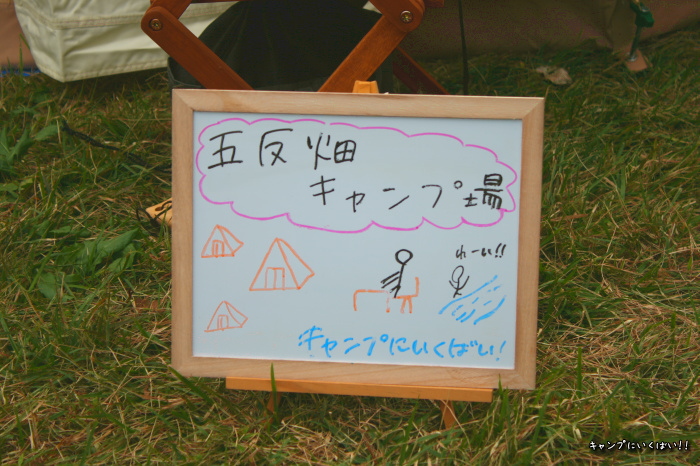 五反畑
キャンプ場
わーい!!
キャンプにいくばい!
キャンプにいくばい!!